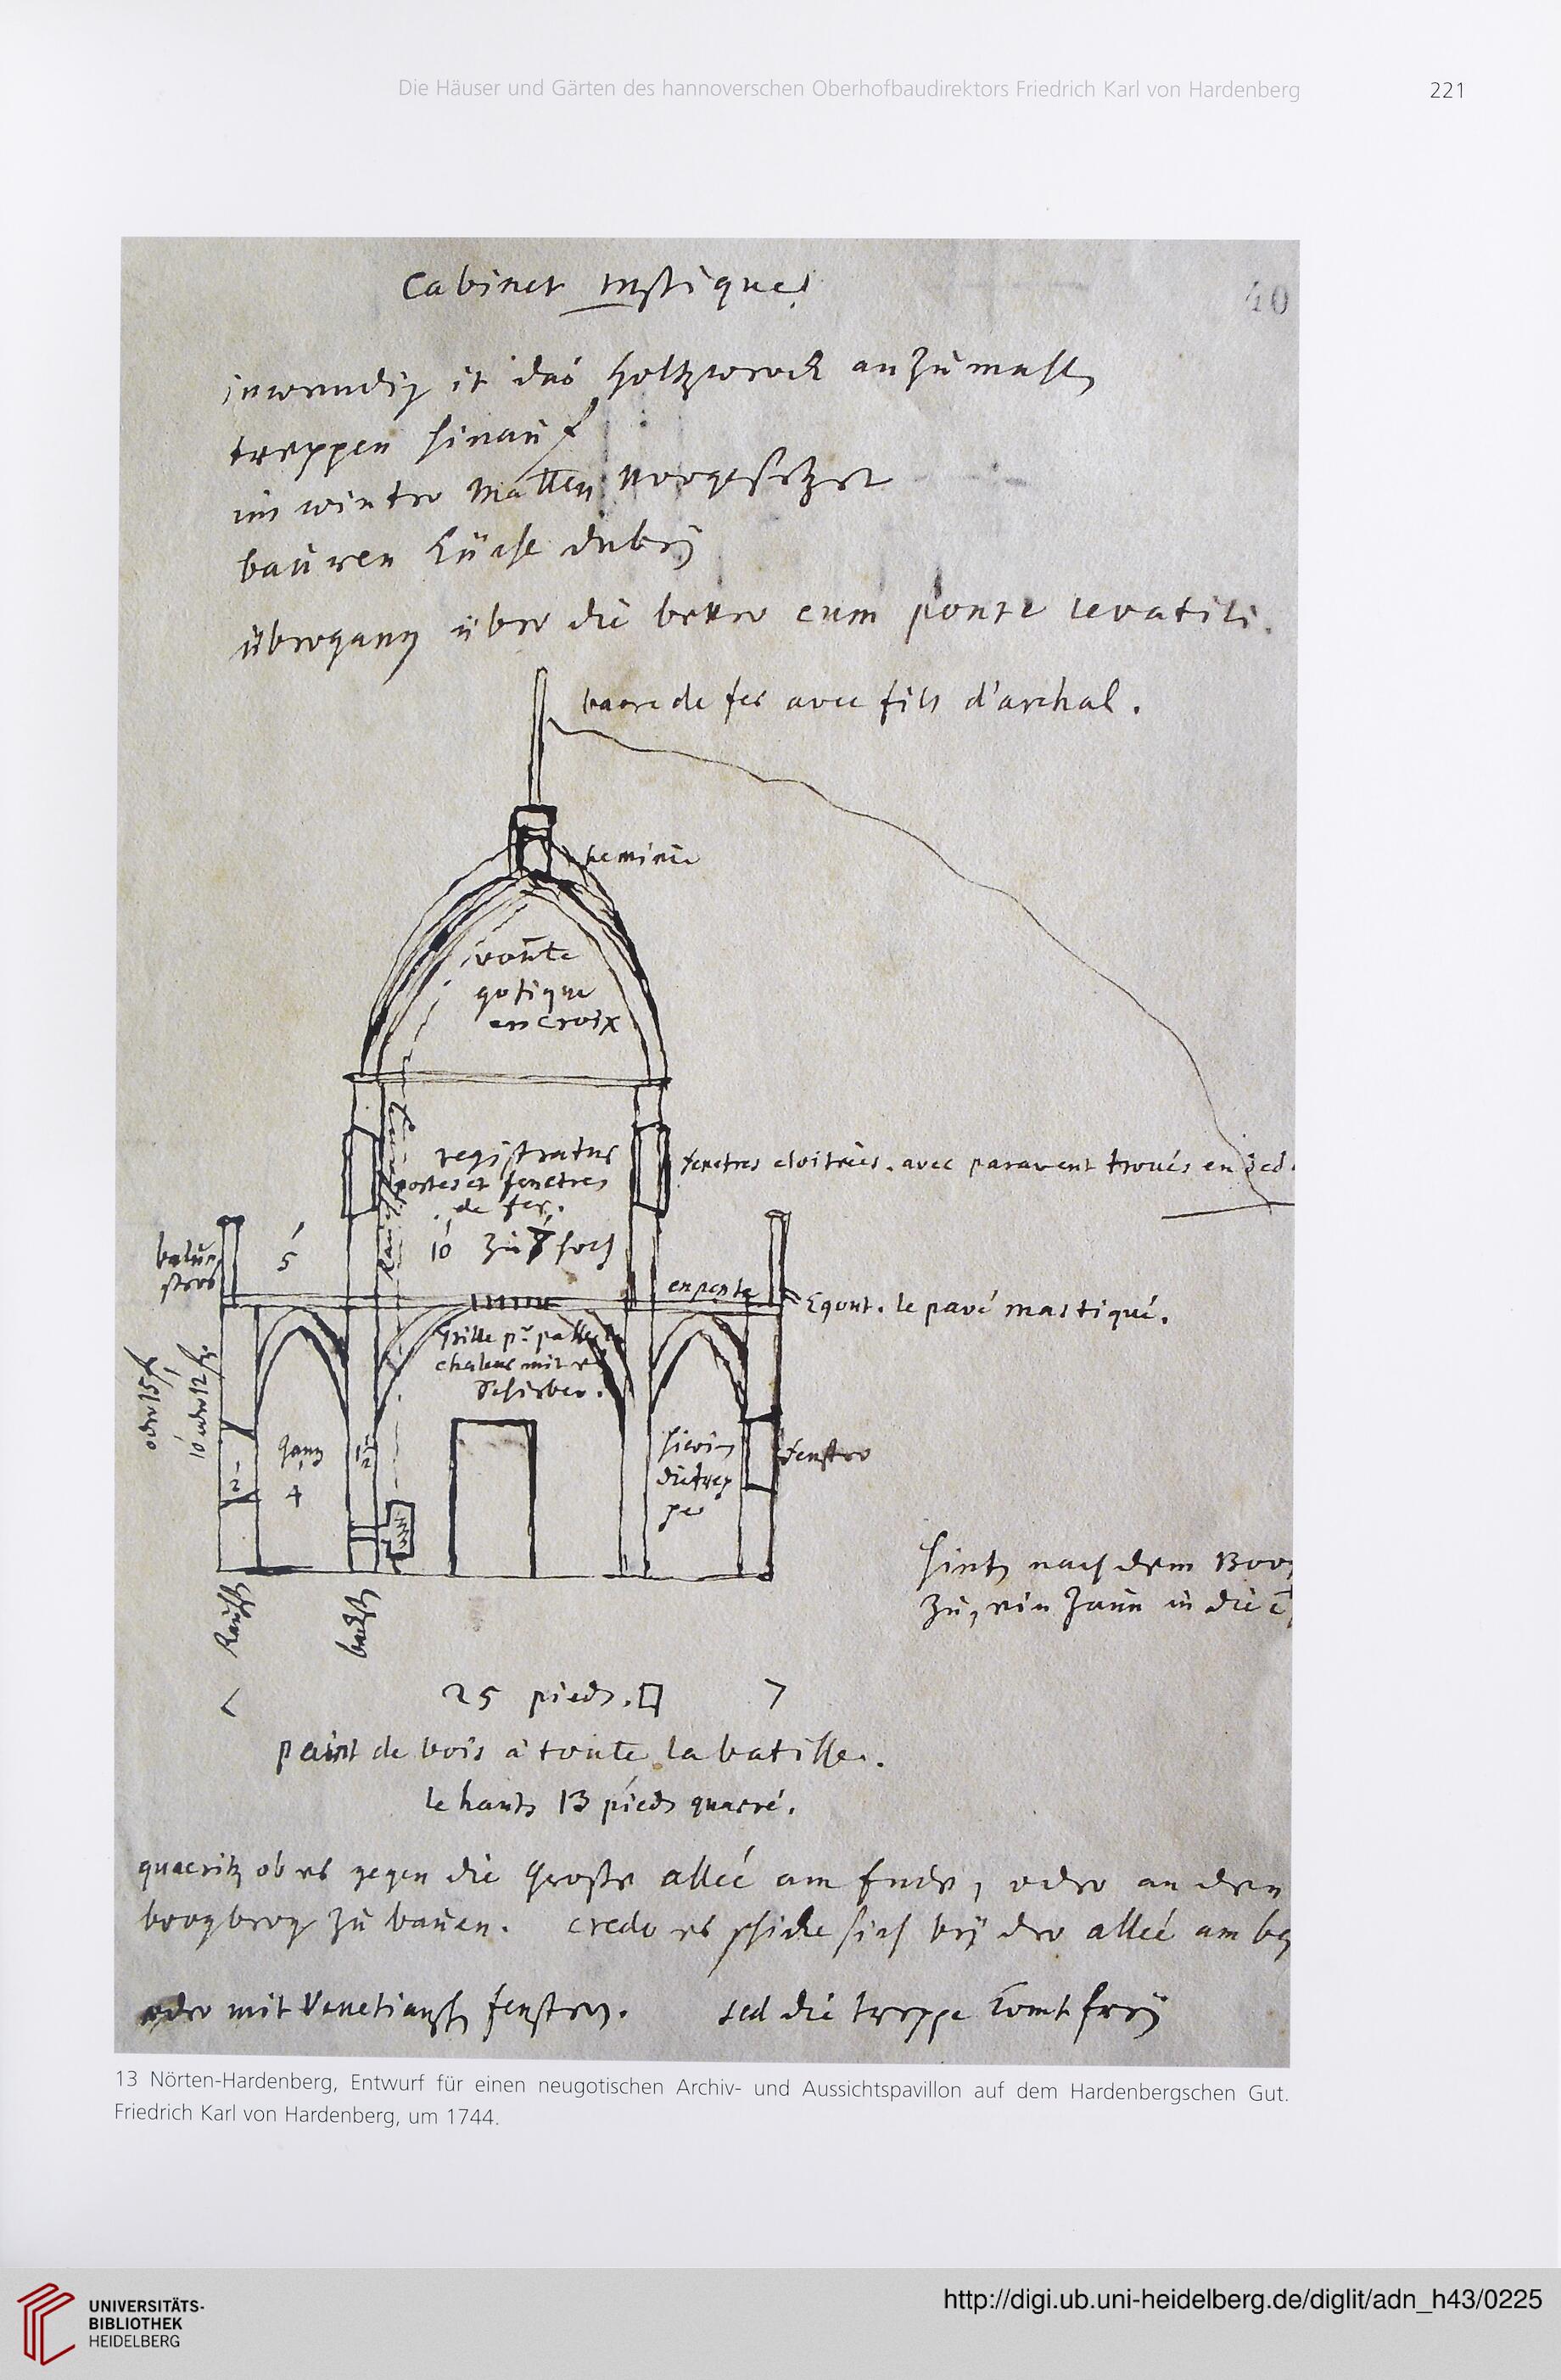 Die Häuser und Gärten des hannoverschen Oberhofbaudirektors Friedrich Karl von Hardenberg
221
Cabinet rustique
40
inwendig ist das Holtzwerck anzumahlen
treppen hinauf
im winter Matten vorgesetzet
bauren Küche dabey
übergang über die cum ponte levatili.
barre de fer avec fils d'archal.
cheminée
voute
gotique
en croix
registratur
portes et fenetres
de fer.
10 zu 8 hoch
fenetres cloitrées. avec paravent troués en
balu-
sters
5
en pente
Egout. le pavé mastiqué.
grille pr
chaleur mit
Scherben.
oder 15 f
10 oder 12 f
gang
4
2
1½
hierin
die trep
pe
fenster
hinten nach dem
zu, ein Zaun in die
25 pieds. □
point de bois a toute la batisse.
le haut 13 pieds quarré.
ob es gegen die Große allée am Ende, oder an den
zu bauen. credo es schicke sich bey der allée am
oder mit Venetiansch fenstern. sed die treppe komt frey
13 Nörten-Hardenberg, Entwurf für einen neugotischen Archiv- und Aussichtspavillon auf dem Hardenbergschen Gut.
Friedrich Karl von Hardenberg, um 1744.
UNIVERSITÄTS-
BIBLIOTHEK
HEIDELBERG
http://digi.ub.uni-heidelberg.de/diglit/adn_h43/0225